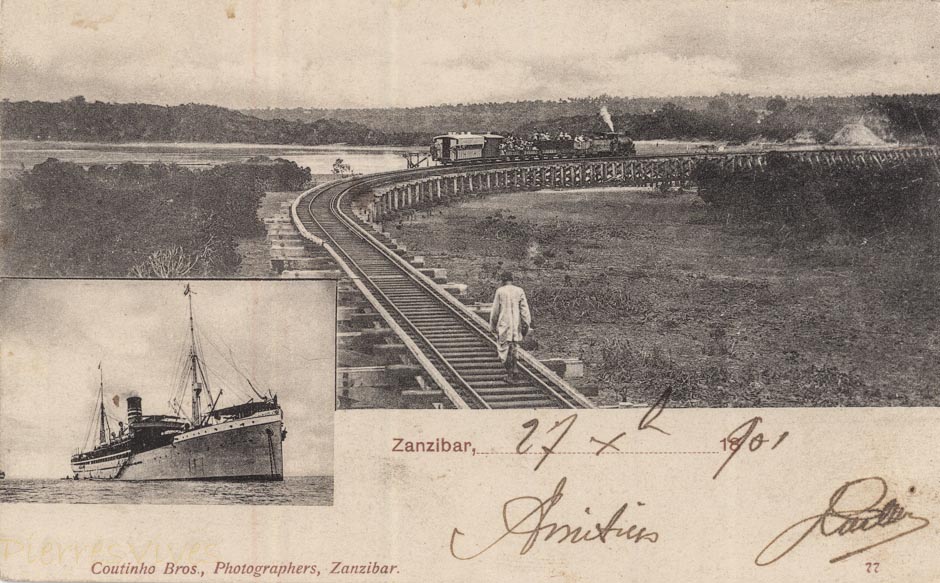 Zanzibar, 27 Xbr 1901
Amitiés
PierresVives
Coutinho Bros., Photographers, Zanzibar.
77